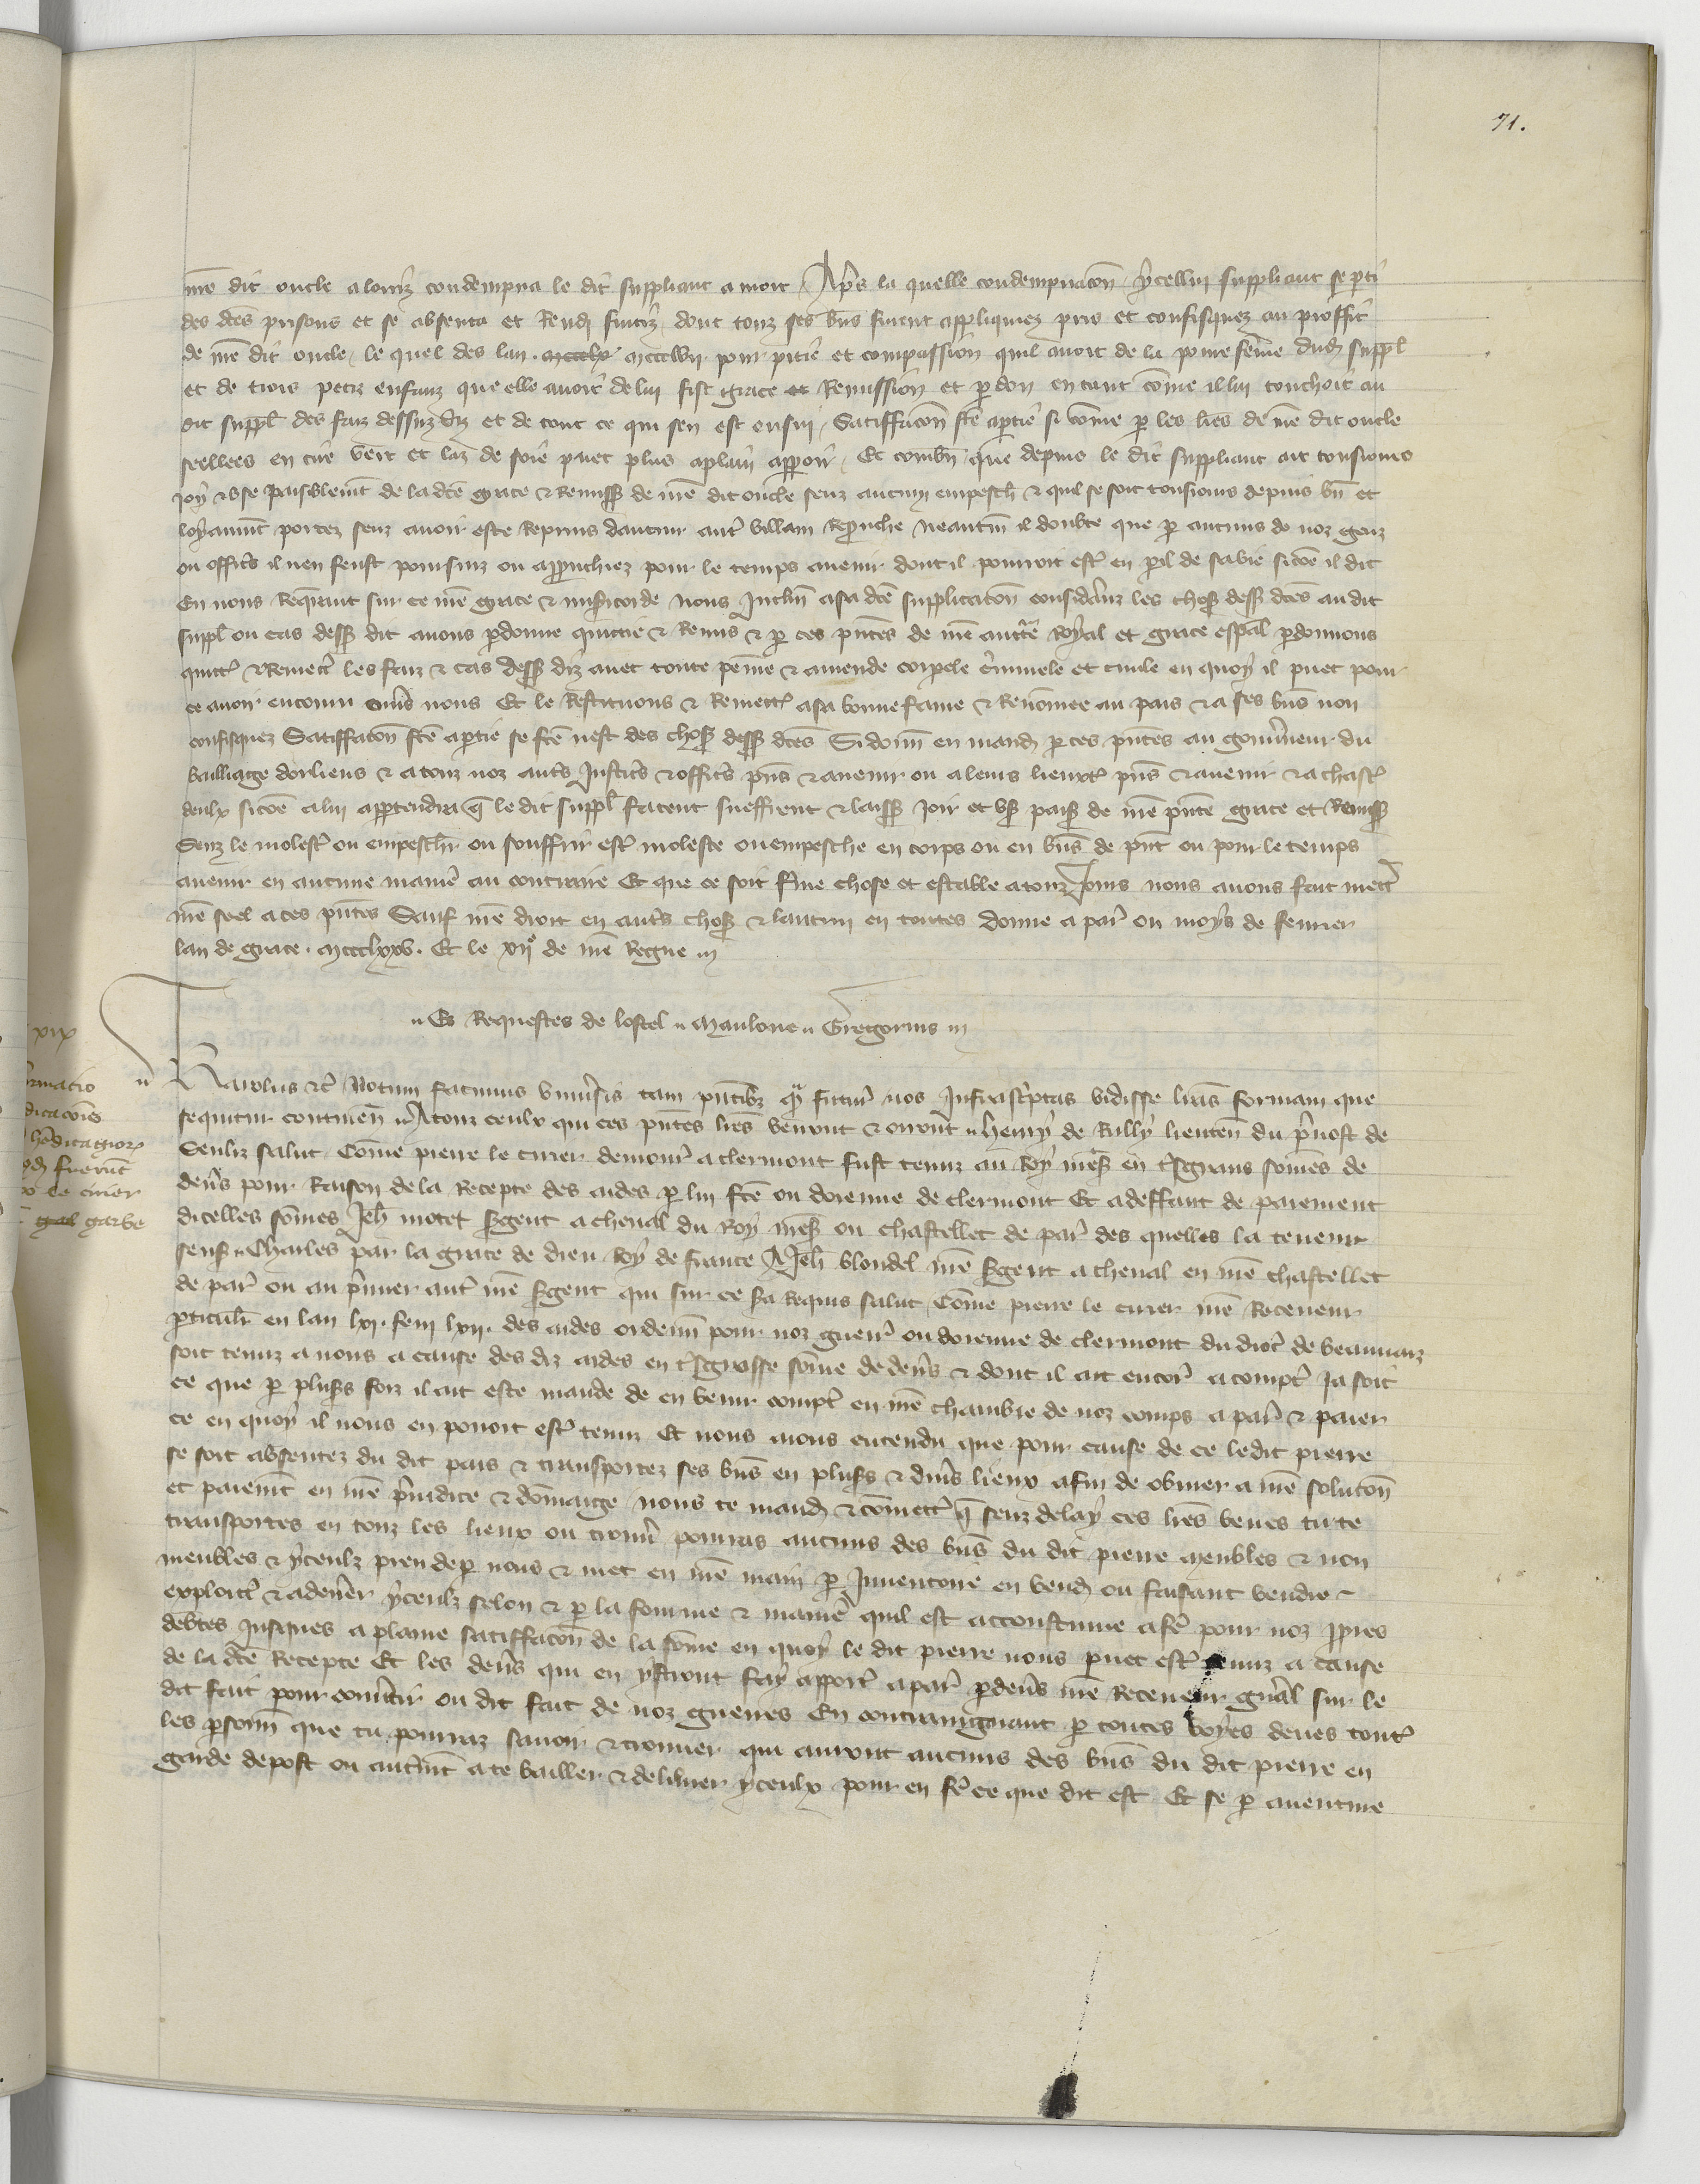 71.
nr̃e dit oncle a lourz condempna le dit suppliant a mort Apr̃s la quelle condempnacõn ycellui suppliant se pti
des dc̃es prisons et se absenta et rend fuitiz dont touz ses bñs furent appliquiez pris et confisquez au proffit
de nr̃e dit oncle le quel des lan mccclvii pour pitie et compassion quil avoit de la povre fẽme dud suppl
et de trois petiz enfanz que elle avoit de lui fist grace et remission et pardon en tant cõme il lui touchoit au
dit suppl des faiz dessuz diz et de tout ce qui sen est ensui Satiffacõn fc̃e a ptie si cõme p les lr̃es de nr̃e dit oncle
seellees en cire vert et laz de soie puet plus a plain apparoir Et combñ que depuis le dit suppliant ait tousiours
joy & use paisiblemt de la dc̃e grace & remiss de nr̃e dit oncle senz aucun empesch & quil se soit tousiours depuis bñ et
loyaumt portez senz avoir este repris daucun autr̃ villain reprouche neantm̃ il doubte que p aucuns de noz genz
ou officr̃s il nen feust poursuiz ou approuchiez pour le temps avenir dont il pourroit estr̃ en peril de sa vie si cõe il dit
En nous requerant sur ce nr̃e grace & misericorde Nous Inclin a sa dc̃e supplicacõn considerans les choses dess dc̃es au dit
suppl ou cas dess dit avons pdonne quittie & remis & p ces pñtes de nr̃e auctr̃e royal et grace esp̃al pdonnons
quitt & remett les faiz & cas dess diz avec toute peine & amende corpele criminele et civile en quoy il puet pour
ce avoir encouru envs nous Et le restituons & remett a sa bonne fame & renõmee au pais & a ses bñs non
confisquez Satiffacõn fc̃e a ptie se fc̃e nest des choses dess dc̃es Si donn en mand p ces pñtes au gouverneur du
bailliage dorliens & a touz noz autr̃s justicr̃s & officr̃s pñs & avenir ou a leurs lieuxt pñs & avenir & a chascũ
deulx si cõe a lui appartendra q̃ le dit suppl facent sueffrent & laiss joir et user pais de nr̃e pñte grace et remiss
Senz le molestr̃ ou empeschr̃ ou souffrir estr̃ moleste ou empesche en corps ou en bñs de pñt ou pour le temps
avenir en aucune manier̃ au contraire Et que ce soit ferme chose et estable a touz jours nous avons fait mettr̃
nr̃e seel a ces pñtes Sauf nr̃e droit en autr̃s choses & lautrui en toutes Donne a par̃ ou moys de fevrier
lan de grace mccclxxv. Et le xiie de nr̃e regne
Es Requestes de lostel Maulone Gregorius
Karolus etc̃ Notum facimus universis tam pñtibz qm̃ futur̃ nos Infrascriptas vidisse lr̃as formam que
sequitur continen A touz ceulx qui ces pñtes lr̃es verront & orront Henry de Rully lieuten du prevost de
Senliz salut Cõme pierre le cirier demour̃ a clermont fust tenuz au Roy nr̃es en tres grans sõmes de
deñrs pour raison de la recepte des aides p lui fc̃e ou doienne de clermont Et a deffaut de paiement
dicelles sõmes Jeh̃ motet sergent a cheval du Roy nr̃es ou chastellet de par̃ des quelles la teneur
sensr̃ Charles par la grace de dieu Roy de france A Jeh̃ blondel nr̃e sergent a cheval en nr̃e chastellet
de par̃ ou au premier autr̃ nr̃e sergent qui sur ce sera requis salut Cõme pierre le cirier nr̃e receveur
pticulr̃ en lan lxi. feni lxii. des aides ordenn pour noz guerr̃ ou doienne de clermont du dioc̃ de beauvaiz
soit tenuz a nous a cause des diz aides en tres grosse sõme de deñrs & dont il ait encor̃ a comptr̃ Ja soit
ce que p plusrs foiz il ait este mande de en venir comptr̃ en nr̃e chambre de noz comps a par̃ & paier
ce en quoy il nous en povoit estr̃ tenuz Et nous avons entendu que pour cause de ce ledit pierre
se soit absentez du dit pais & transportez ses bñs en plusrs & divs lieux afin de obvier a nr̃e solucõn
et paiemt en nr̃e preiudice & dõmaige Nous te mand & cõmett q̃ senz delay ces lr̃es veues tu te
transportes en touz les lieux ou trouver pourras aucuns des bñs du dit pierre meubles & non
meubles & yceulz pren de par nous & met en nr̃e main p Inventoire en vend ou faisant vendre
exploictr̃ & adenerer yceulz selon & p la fourme & maniere quil est accoustume a fr̃e pour noz ppres
debtes jusques a plaine satiffacõn de la sõme en quoy le dit pierre nous puet estr̃ tenuz a cause
de la dc̃e recepte Et les deñrs qui en ystront fay apportr̃ a par̃ p deñrs nr̃e Receveur gñal sur le
dit fait pour convertir ou dit fait de noz guerres En contraingnant p toutes voyes deues tout̃
les psonñ que tu pourras savoir & trouver qui auront aucuns des bñs du dit pierre en
garde depost ou autremt a te bailler & delivrer yceulx pour en fr̃e ce que dit est Et se p aventure
xix
rmacio
dicacõnes
fuerũt
le cirier
garbe